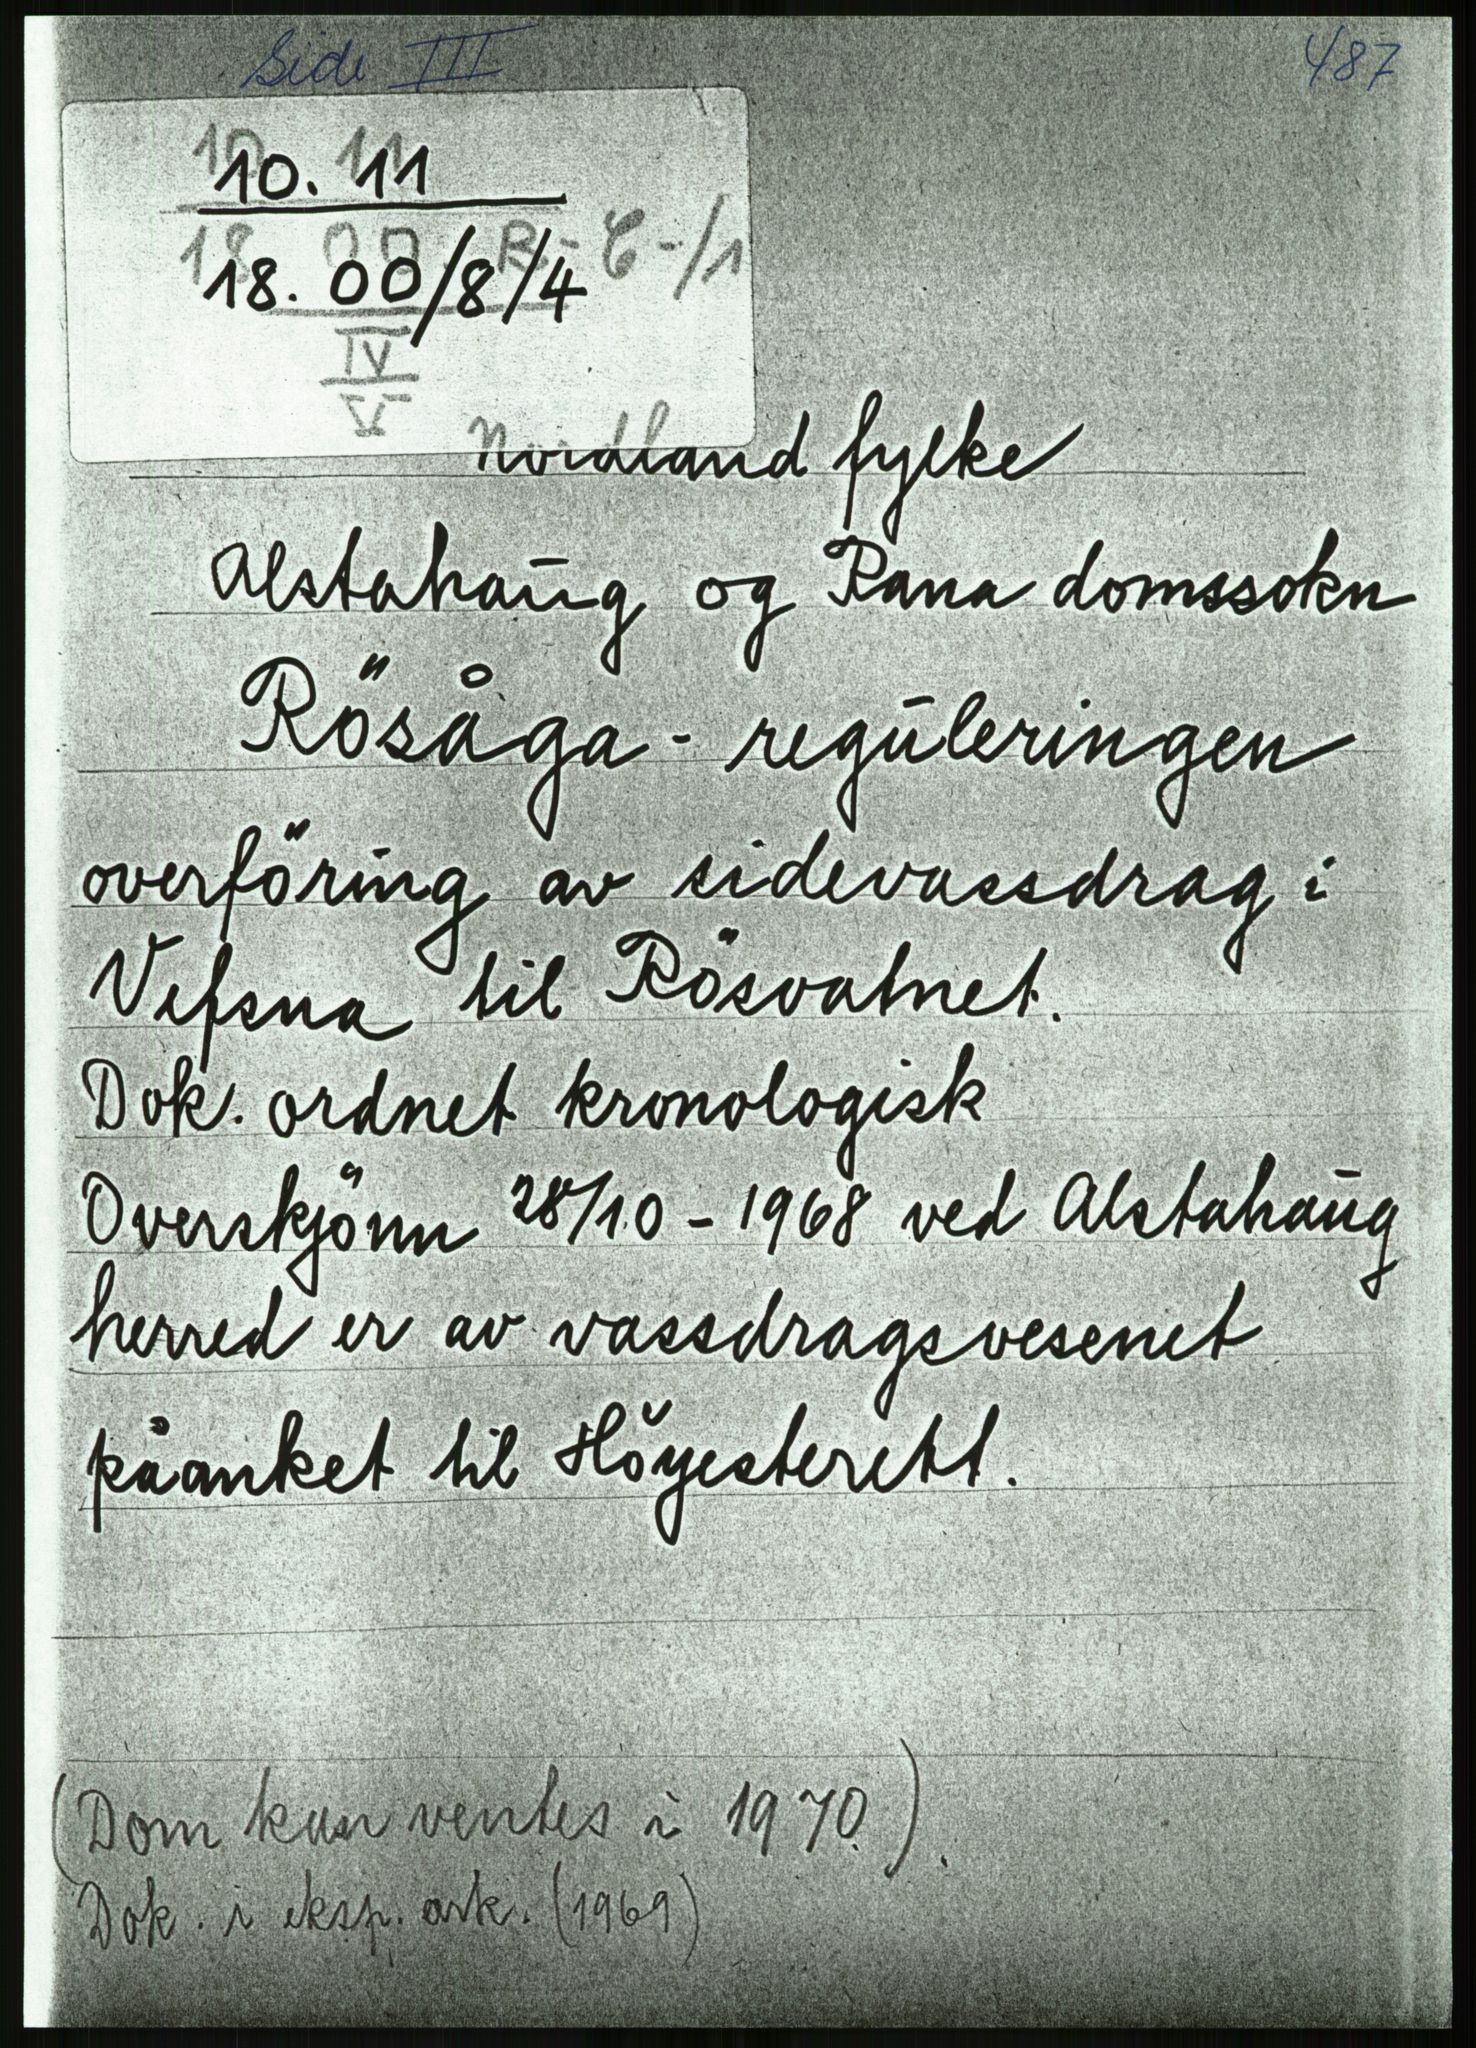 Side III
487
10. 11
18. 00/8/4
C-/1
IV
V
Nordland fylke
Alstahaug og Rana domssokn
Rösåga - reguleringen
overföring av sidevassdrag i
Vefsna til Rösvatnet.
Dok. ordnet kronologisk
Overskjönn 28/10 - 1968 ved Alstahaug
herred er av vassdragsvesenet
påanket til Höyesterett.
(Dom kan ventes i 1970).
Dok. i eksp. ark. (1969)